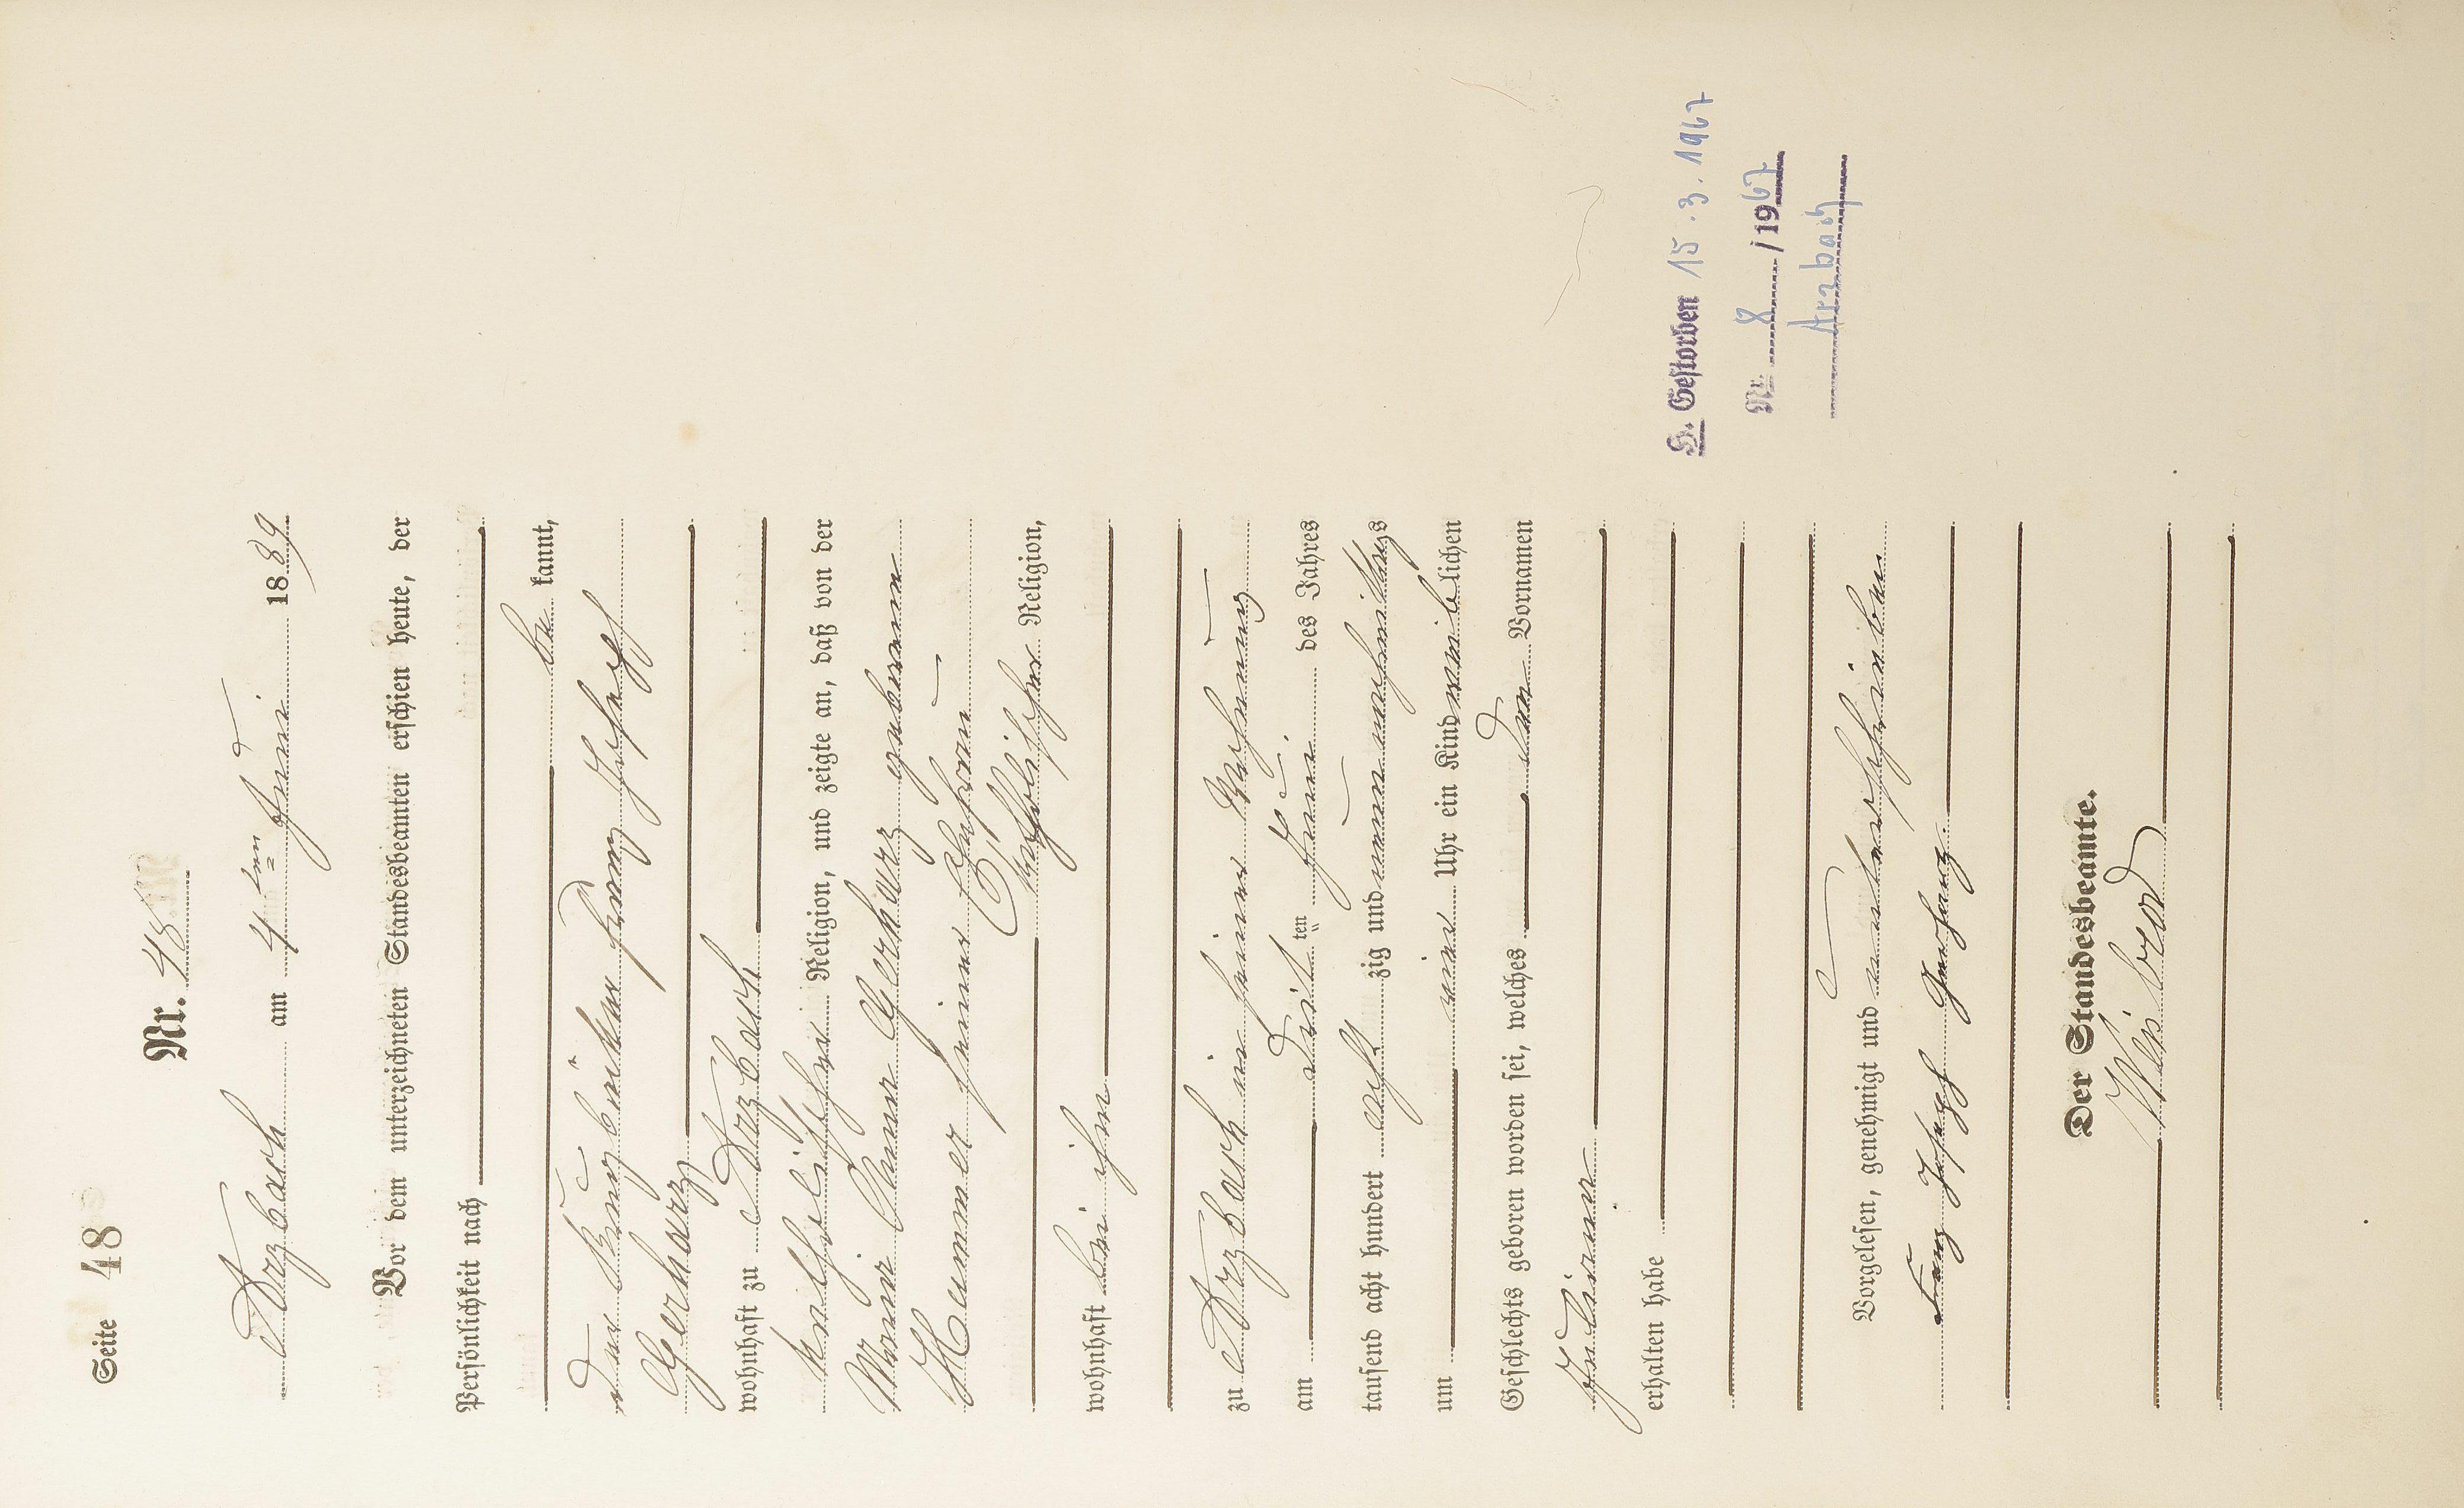 Seite 48
Nr. 48
Arzbach am 4ten Juni 1889
Vor dem unterzeichneten Standesbeamten erschien heute, der
Persönlichkeit nach
be kannt,
der Franz Joseph
Gerharz
wohnhaft zu Arzbach
katholischer Religion, und zeigte an, daß von der
Maria Anna Gerharz geborenen
Hummer seiner Ehefrau
katholischer Religion,
wohnhaft bei ihm
zu Arzbach in seiner Wohnung
am drit ten Juni des Jahres
tausend acht hundert acht zig und neun nachmittags
um vier Uhr ein Kind weib lichen
Geschlechts geboren worden sei, welches den Vornamen
erhalten habe
Vorgelesen, genehmigt und unterschrieben
Franz Joseph Gerharz.
Der Standesbeamte.
H. Gestorben 15.3.1967
Nr. 8 / 1967
Arzbach